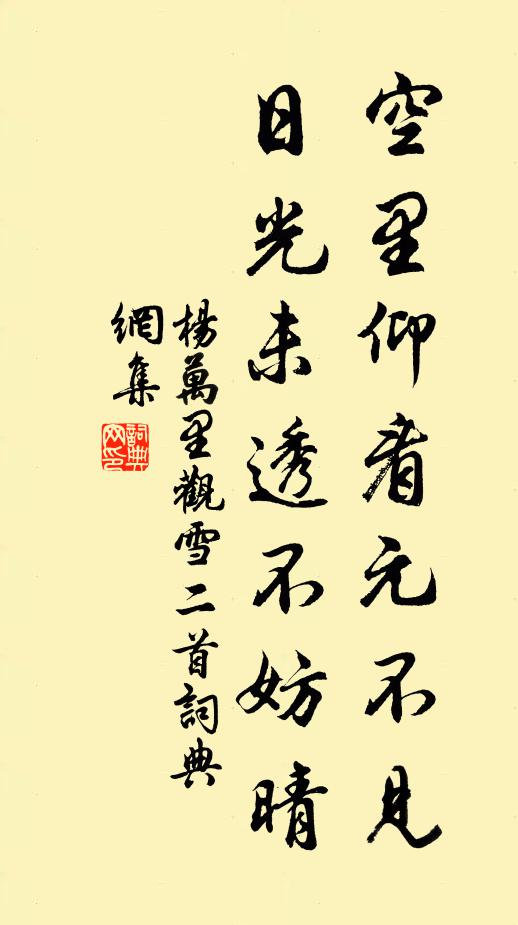 空里仰看元不見
日光未透不妨晴
楊萬里觀雪二首詞典
網集
詞典
网印